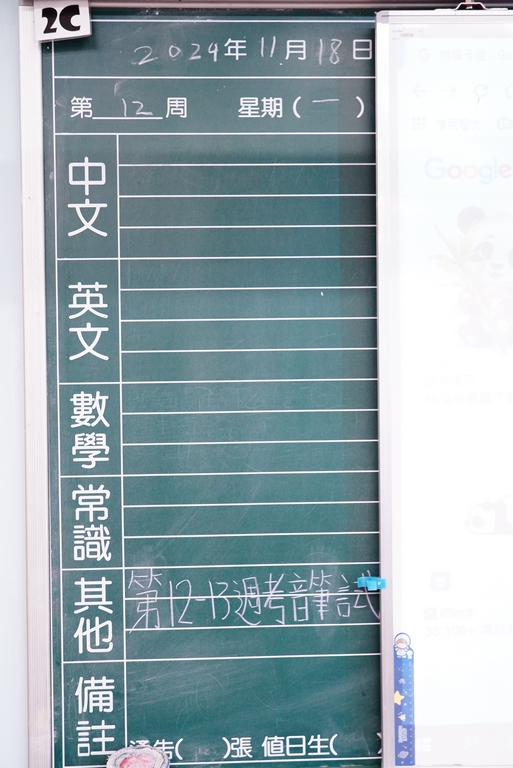 2C
2024年11月18日
第 12 周 星期(一)
中文
英文
數學
常識
其他 第12-13週考音筆試
備註
通告( )張 值日生( )
Google